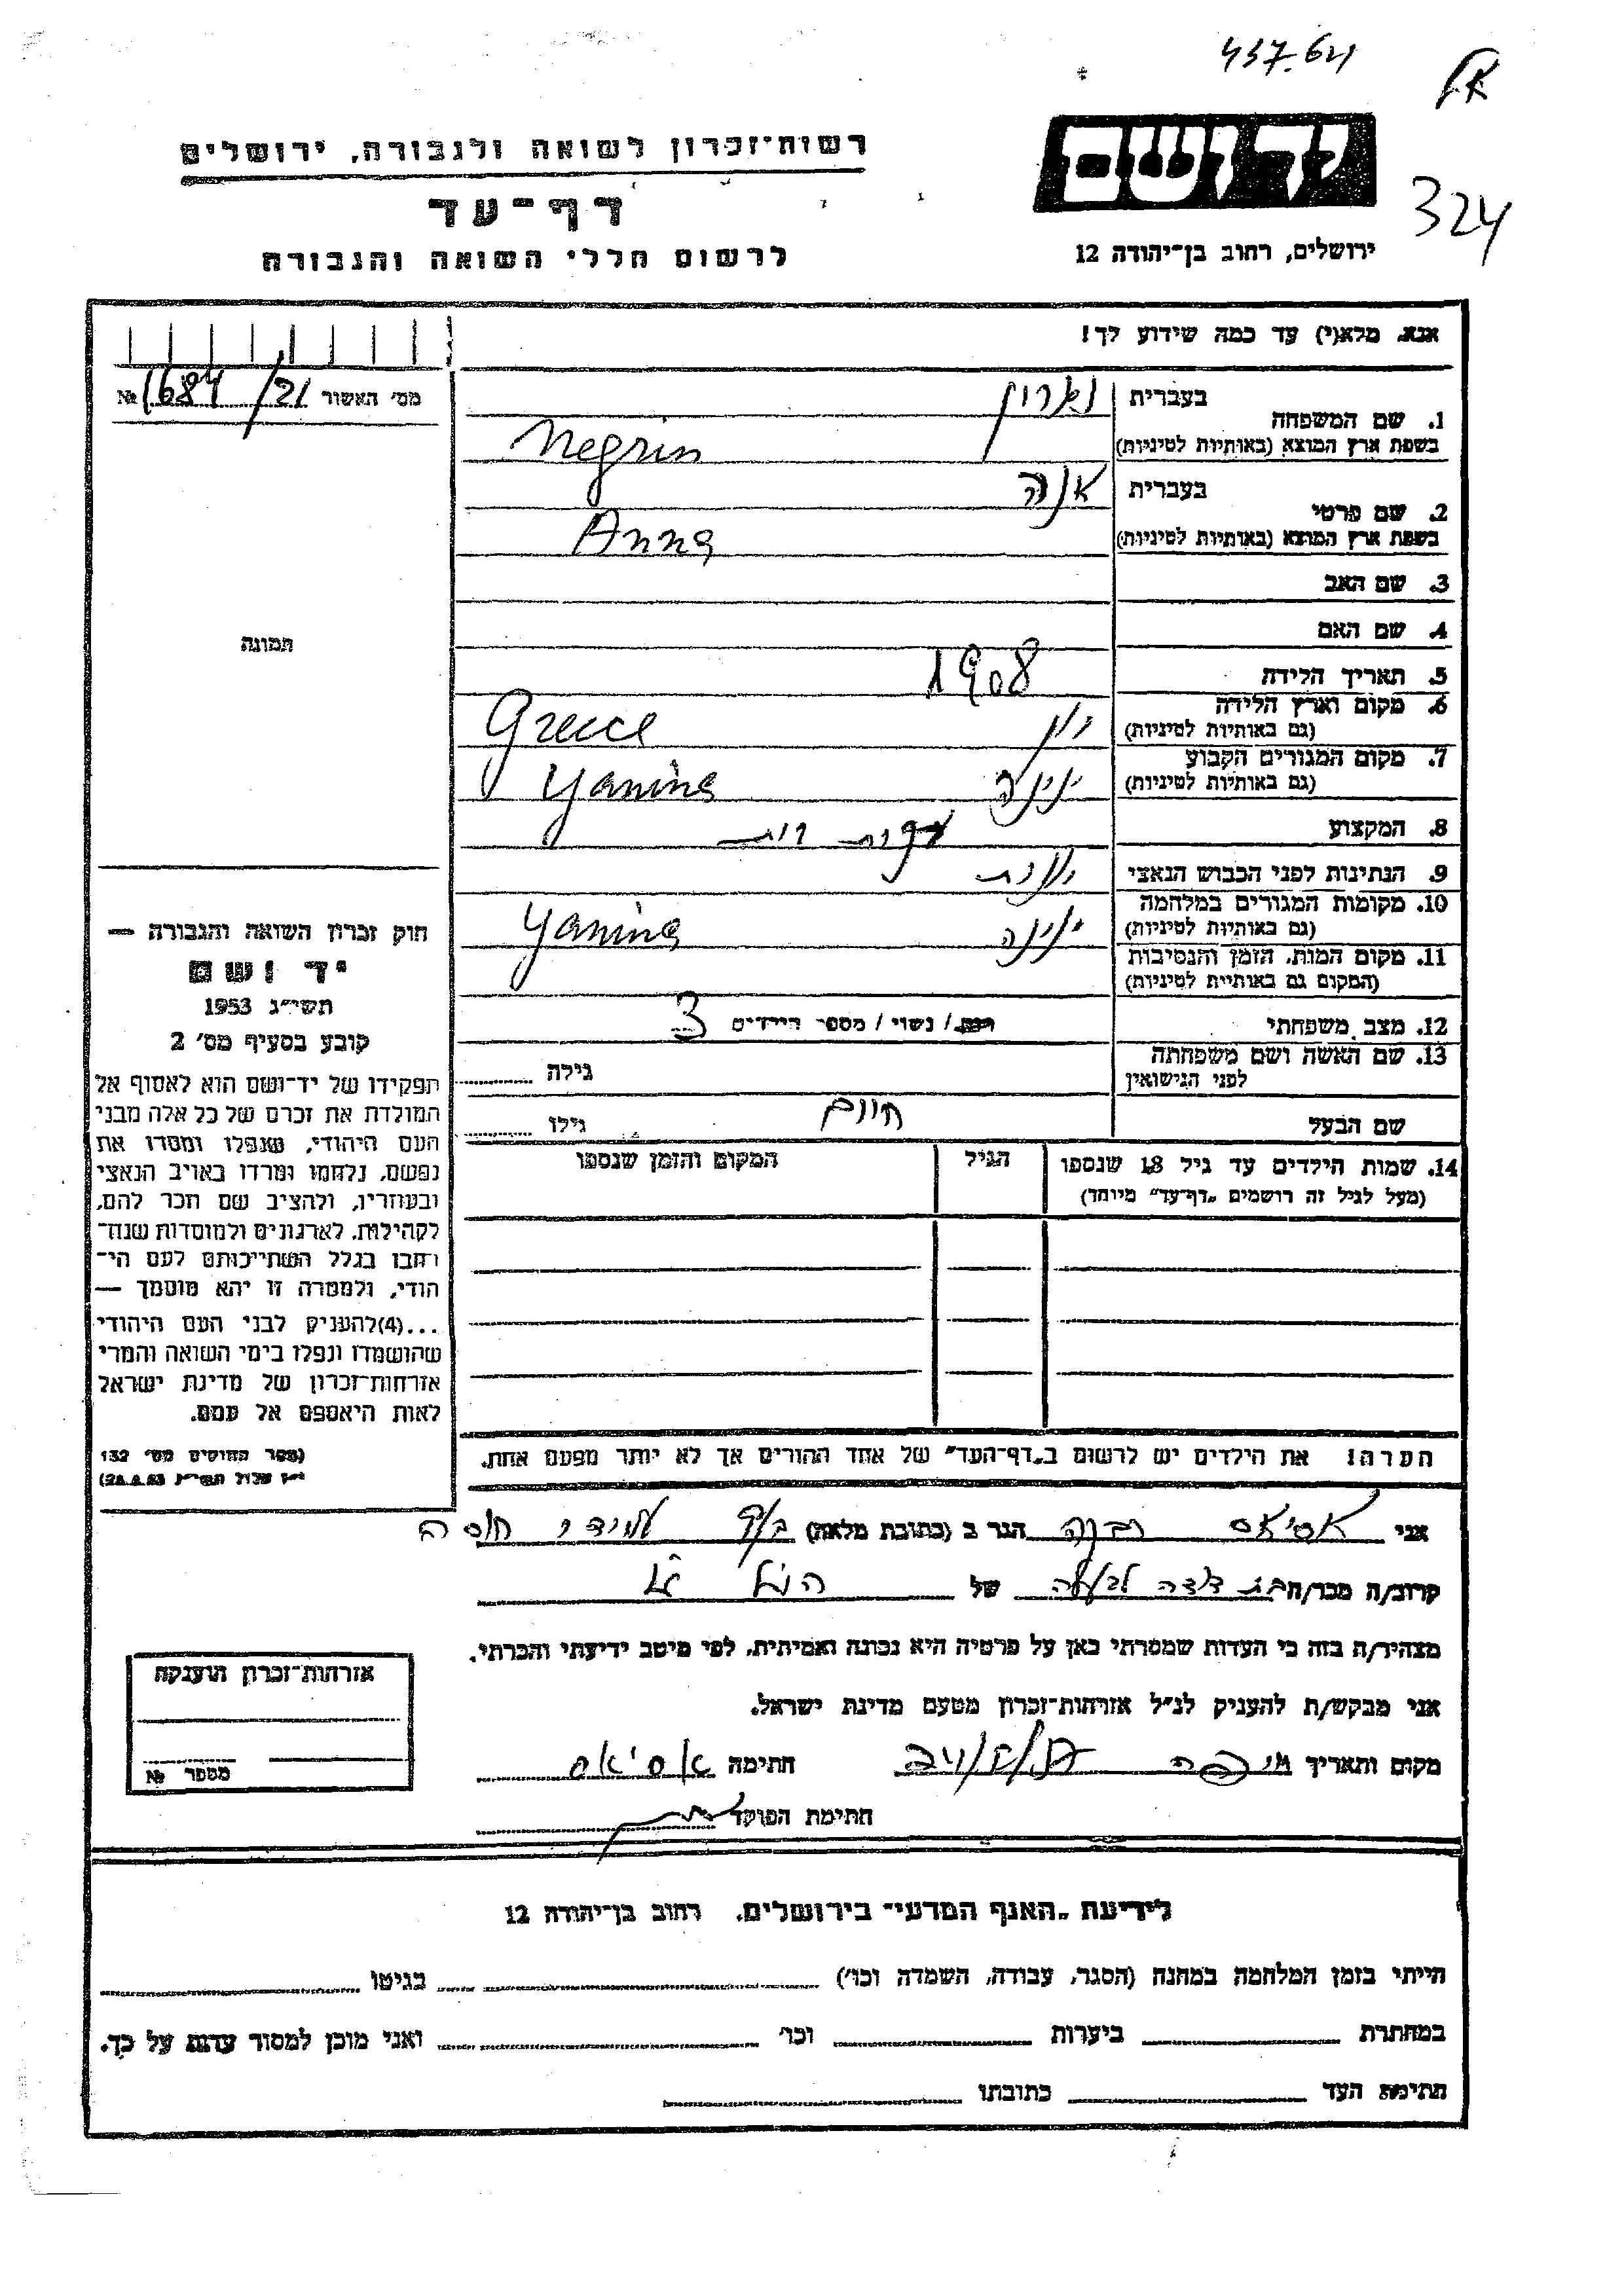 437.64
324
יד ושם
רשות־זכרון לשואה ולגבורה, ירושלים
דף־עד
לרשום חללי השואה והגבורה
ירושלים, רחוב בן־יהודה 12
אנא, מלא(י) עד כמה שידוע לך!
מס׳ האשור 21/ 1684 №
1. שם המשפחה
בעברית
בשפת ארץ המוצא (באותיות לטיניות) Negrin
2. שם פרטי
בעברית אנה
בשפת ארץ המוצא (באותיות לטיניות) Anna
3. שם האב
4. שם האם
תמונה
5. תאריך הלידה 1908
6. מקום וארץ הלידה יון Greece
(גם באותיות לטיניות)
7. מקום המגורים הקבוע ינינה Yanina
(גם באותיות לטיניות)
8. המקצוע עקרת בית
9. הנתינות לפני הכבוש הנאצי יונית
10. מקומות המגורים במלחמה ינינה Yanina
(גם באותיות לטיניות)
11. מקום המות, הזמן והנסיבות
(המקום גם באותיות לטיניות)
12. מצב משפחתי רווק / נשוי / מספר הילדים 3
13. שם האשה ושם משפחתה לפני הנישואין גילה
שם הבעל חיים גילו
14. שמות הילדים עד גיל 18 שנספו הגיל המקום והזמן שנספו
(מעל לגיל זה רושמים „דף־עד״ מיוחד)
הערה! את הילדים יש לרשום ב„דף־העד״ של אחד ההורים אך לא יותר מפעם אחת.
חוק זכרון השואה והגבורה —
יד ושם
תשי״ג 1953
קובע בסעיף מס׳ 2
תפקידו של יד־ושם הוא לאסוף אל
המולדת את זכרם של כל אלה מבני
העם היהודי, שנפלו ומסרו את
נפשם, נלחמו ומרדו באויב הנאצי
ובעוזריו, ולהציב שם וזכר להם,
לקהילות, לארגונים ולמוסדות שנח־
רבו בגלל השתייכותם לעם הי־
הודי, ולמטרה זו יהא מוסמך —
...(4)להעניק לבני העם היהודי
שהושמדו ונפלו בימי השואה והמרי
אזרחות־זכרון של מדינת ישראל
לאות היאספם אל עמם.
(ספר החוקים מס׳ 132
י״ז אלול תשי״ג 28.8.53)
אני אסיאס רבקה הגר ב (כתובת מלאה)
קרוב/ה מכר/ה של הנ״ל
מצהיר/ה בזה כי העדות שמסרתי כאן על פרטיה היא נכונה ואמיתית, לפי מיטב ידיעתי והכרתי.
אני מבקש/ת להעניק לנ״ל אזרחות־זכרון מטעם מדינת ישראל.
מקום ותאריך חיפה חתימה אסיאס
חתימת הפוקד
אזרחות־זכרון הוענקה
מספר №
לידיעת „האגף המדעי״ בירושלים, רחוב בן־יהודה 12
הייתי בזמן המלחמה במחנה (הסגר, עבודה, השמדה וכו׳) בגיטו
במחתרת ביערות וכו׳ ואני מוכן למסור עדות על כך.
חתימת העד כתובתו